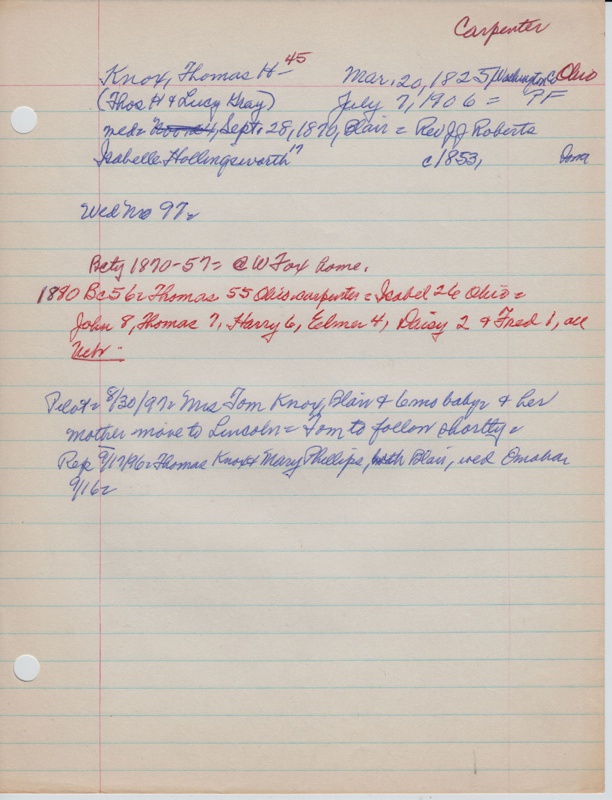 Carpenter
Knox, Thomas H - 45 Mar. 20, 1825, Washington Co Ohio
(Thos H & Lucy Gray) July 7, 1906 = PF
med = Sept. 28, 1870, Blair = Rev JJ Roberts
Isabelle Hollingsworth 17 c1853, Iowa
Wed No 97 =
Bcty 1870-57 = @ W Fox home.
1880 Bc56 = Thomas 55 Ohio carpenter = Isabel 26 Ohio =
John 8, Thomas 7, Harry 6, Elmer 4, Daisy 2 & Fred 1, all
Nebr.
Pilot = 8/30/97 = Mrs Tom Knox, Blair & 6 mo baby = & her
mother move to Lincoln = Tom to follow shortly =
Rep 9/17/96 = Thomas Knox & Mary Phillips, both Blair, wed Omaha
9/16 =